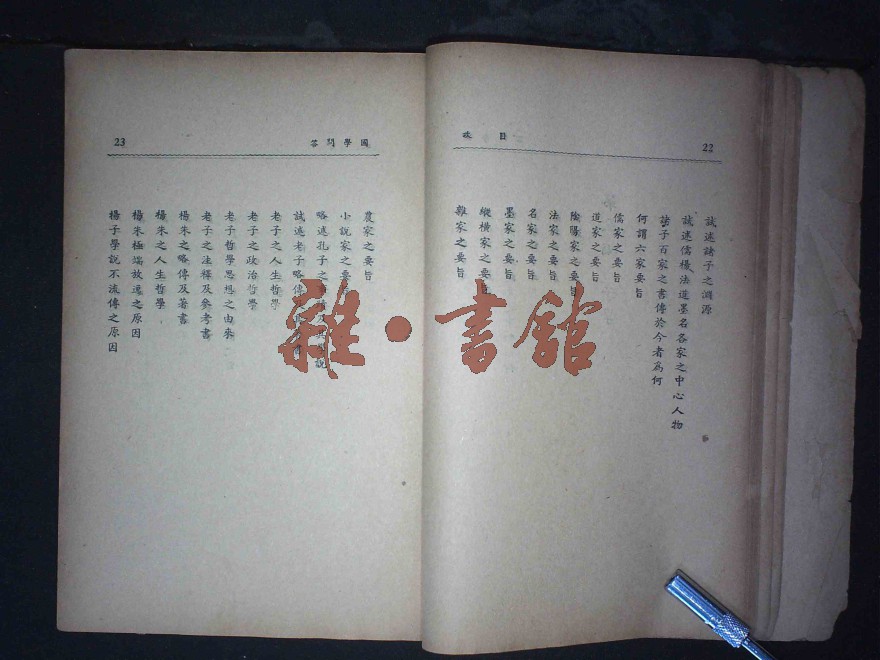 22
目 錄
試述諸子之淵源
試述儒楊法道墨名各家之中心人物
諸子百家之書傳於今者爲何
何謂六家要旨
儒家之要旨
道家之要旨
陰陽家之要旨
法家之要旨
名家之要旨
墨家之要旨
縱橫家之要旨
雜家之要旨
國學問答
23
農家之要旨
小說家之要
略述孔子之
試述老子略傳
老子之人生哲學
老子之政治哲學
老子哲學思想之由來
老子之注釋及參考書
楊朱之略傳及著書
楊朱之人生哲學
楊朱極端放逸之原因
楊子學說不流傳之原因
雜·書館